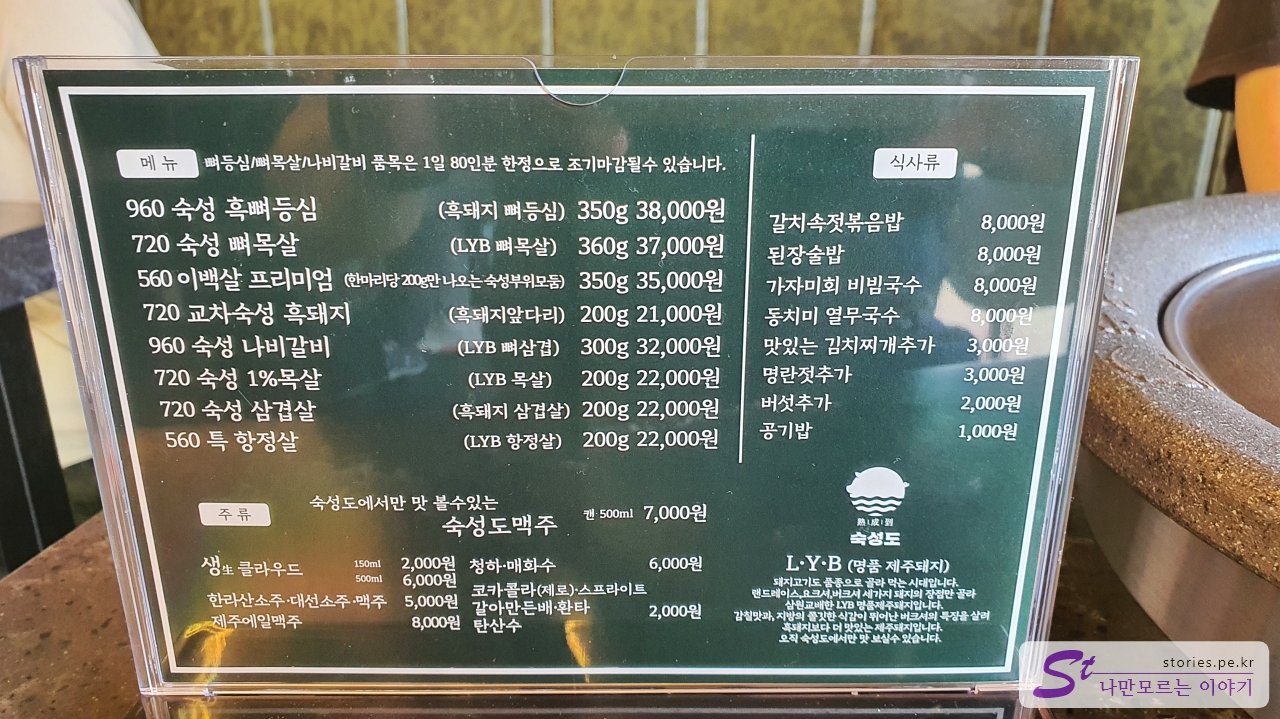 메뉴 뼈등심/뼈목살/나비갈비 품목은 1일 80인분 한정으로 조기마감될수 있습니다.
960 숙성 흑뼈등심 (흑돼지 뼈등심) 350g 38,000원
720 숙성 뼈목살 (LYB 뼈목살) 360g 37,000원
560 이백살 프리미엄 (한마리당 200g만 나오는 숙성부위모둠) 350g 35,000원
720 교차숙성 흑돼지 (흑돼지앞다리) 200g 21,000원
960 숙성 나비갈비 (LYB 뼈삼겹) 300g 32,000원
720 숙성 1%목살 (LYB 목살) 200g 22,000원
720 숙성 삼겹살 (흑돼지 삼겹살) 200g 22,000원
560 특 항정살 (LYB 항정살) 200g 22,000원
식사류
갈치속젓볶음밥 8,000원
된장술밥 8,000원
가자미회 비빔국수 8,000원
동치미 열무국수 8,000원
맛있는 김치찌개추가 3,000원
명란젓추가 3,000원
버섯추가 2,000원
공기밥 1,000원
주류
숙성도에서만 맛 볼수있는
숙성도맥주 캔 500ml 7,000원
생生 클라우드 150ml 2,000원
500ml 6,000원
한라산소주·대선소주·맥주 5,000원
제주에일맥주 8,000원
청하·매화수 6,000원
코카콜라(제로)·스프라이트
갈아만든배·환타 2,000원
탄산수
熟成到
숙성도
L·Y·B (명품 제주돼지)
돼지고기도 품종으로 골라 먹는 시대입니다.
렌드레이스,요크셔,버크셔 세가지 돼지의 장점만 골라
삼원교배한 LYB 명품제주돼지입니다.
감칠맛과, 지방의 쫄깃한 식감이 뛰어난 버크셔의 특징을 살려
흑돼지보다 더 맛있는 제주돼지입니다.
오직 숙성도에서만 맛 보실수 있습니다.
St stories.pe.kr
나만모르는 이야기